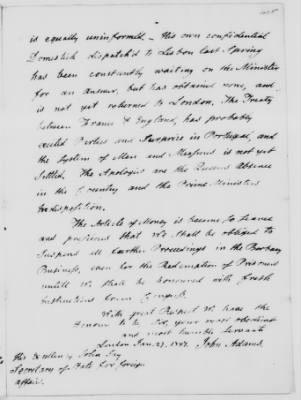 is equally uninformed. His own confidential
Domestick dispatch'd to Lisbon last Spring
has been constantly waiting on the Minister
for an answer, but has obtained none, and
is not yet returned to London. The Treaty
between France & England, has probably
excited Parties and Surprise in Portugal, and
the System of Men and Measures is not yet
Settled. The Apologies are the Queens Absence
in the Country and the Prime Ministers
Indisposition.
The Article of Money is become so scarce
and precious that We shall be obliged to
Suspend all farther Proceedings in the Barbary
Business, even for the Redemption of Prisoners
untill We shall be honoured with fresh
Instructions from Congress.
With great Respect We have the
Honour to be, Sir, your most obedient
and most humble Servants
London Jan. 27. 1787. John Adams.
His Excellency John Jay
Secretary of State for foreign
affairs.